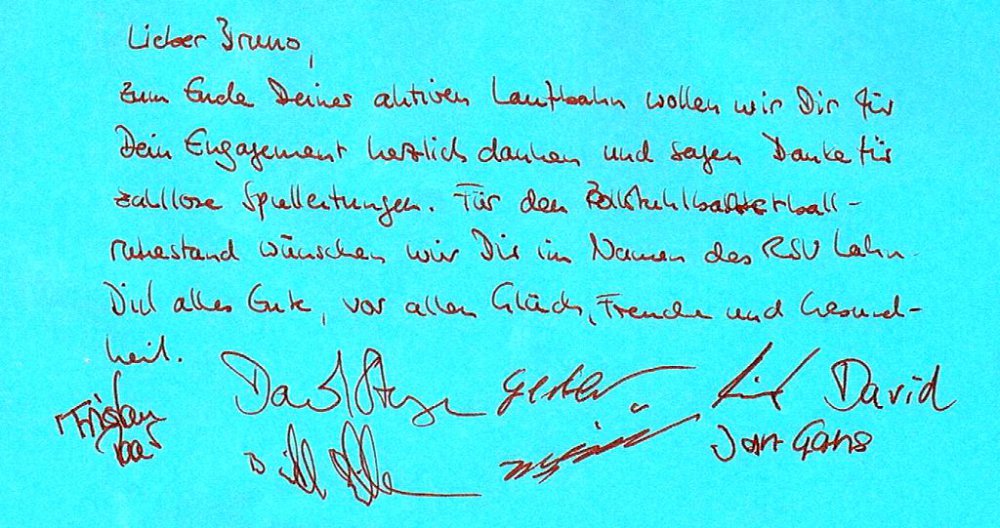 Lieber Bruno,
zum Ende Deiner aktiven Laufbahn wollen wir Dir für
Dein Engagement herzlich danken und sagen Danke für
zahllose Spielleitungen. Für den Rollstuhlbasketball-
ruhestand wünschen wir Dir im Namen des RSV Lahn-
Dill alles Gute, vor allen Glück, Freude und Gesund-
heit.
David
Tristan
Jan Gans